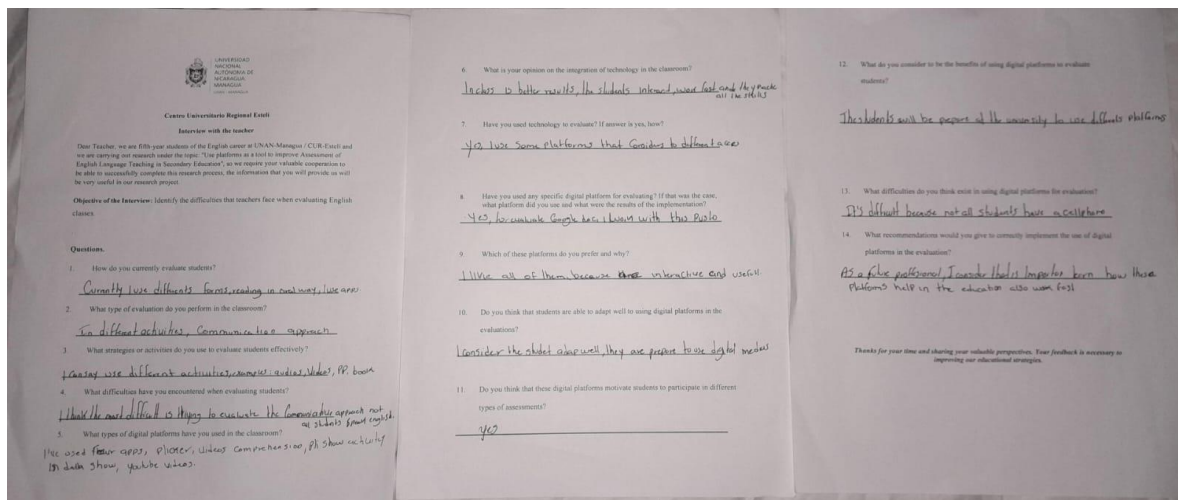 UNIVERSIDAD
NACIONAL
AUTÓNOMA DE
NICARAGUA
MANAGUA
Centro Universitario Regional Estelí
Interview with the teacher
Dear Teacher, we are fifth-year students of the English career at UNAN-Managua / CUR-Estelí and
we are carrying out research under the topic: "Use platforms as a tool to improve Assessment of
English Language Teaching in Secondary Education", so we require your valuable cooperation to
be able to successfully complete this research process, the information that you will provide us will
be very useful in our research project.
Objective of the Interview: Identify the difficulties that teachers face when evaluating English
classes.
Questions.
1. How do you currently evaluate students?
Currently I use differents forms, reading in oral way, I use app
2. What type of evaluation do you perform in the classroom?
In different activities, Communication approach
3. What strategies or activities do you use to evaluate students effectively?
use different activities, examples: audios, Videos, PP, book
4. What difficulties have you encountered when evaluating students?
I think the most difficult is trying to evaluate the Communicative approach not
all students speak english.
5. What types of digital platforms have you used in the classroom?
I've used apps, plicker, videos comprehension, activity
data show, youtube videos.
6. What is your opinion on the integration of technology in the classroom?
In class is better results, the students interact, work fast and they
all the skills
7. Have you used technology to evaluate? If answer is yes, how?
Yes, I use Some platforms that
8 Have you used any specific digital platform for evaluating? If that was the case,
what platform did you use and what were the results of the implementation?
Yes, to evaluate Google docs I with this
9. Which of these platforms do you prefer and why?
I like all of them because interactive and usefull.
10. Do you think that students are able to adapt well to using digital platforms in the
evaluations?
I consider the studet adap well, they are prepare to use digital
11. Do you think that these digital platforms motivate students to participate in different
types of assessments?
yes
12. What do you consider to be the benefits of using digital platforms in evaluate
students?
The students will be prepare at the university to use differents platforms
13. What difficulties do you think exist in using digital platforms for evaluation?
It's difficult because not all students have a cellphone
14. What recommendations would you give to correctly implement the use of digital
platforms in the evaluation?
As a proffesional, I consider that is how these
Platforms help in the education also work fast
Thanks for your time and sharing your valuable perspectives. Your feedback is necessary to
improving our educational strategies.